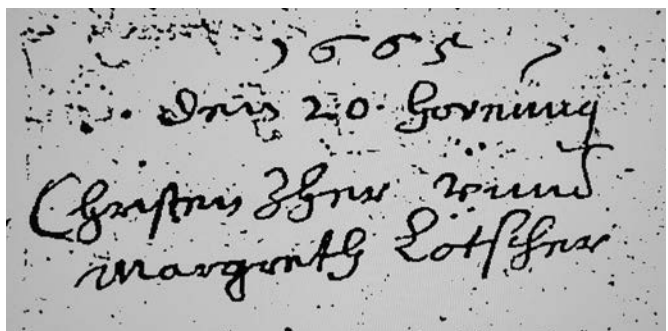 1665
Den 20. Hornung
Christen Zher vnnd
Margreth Lötscher